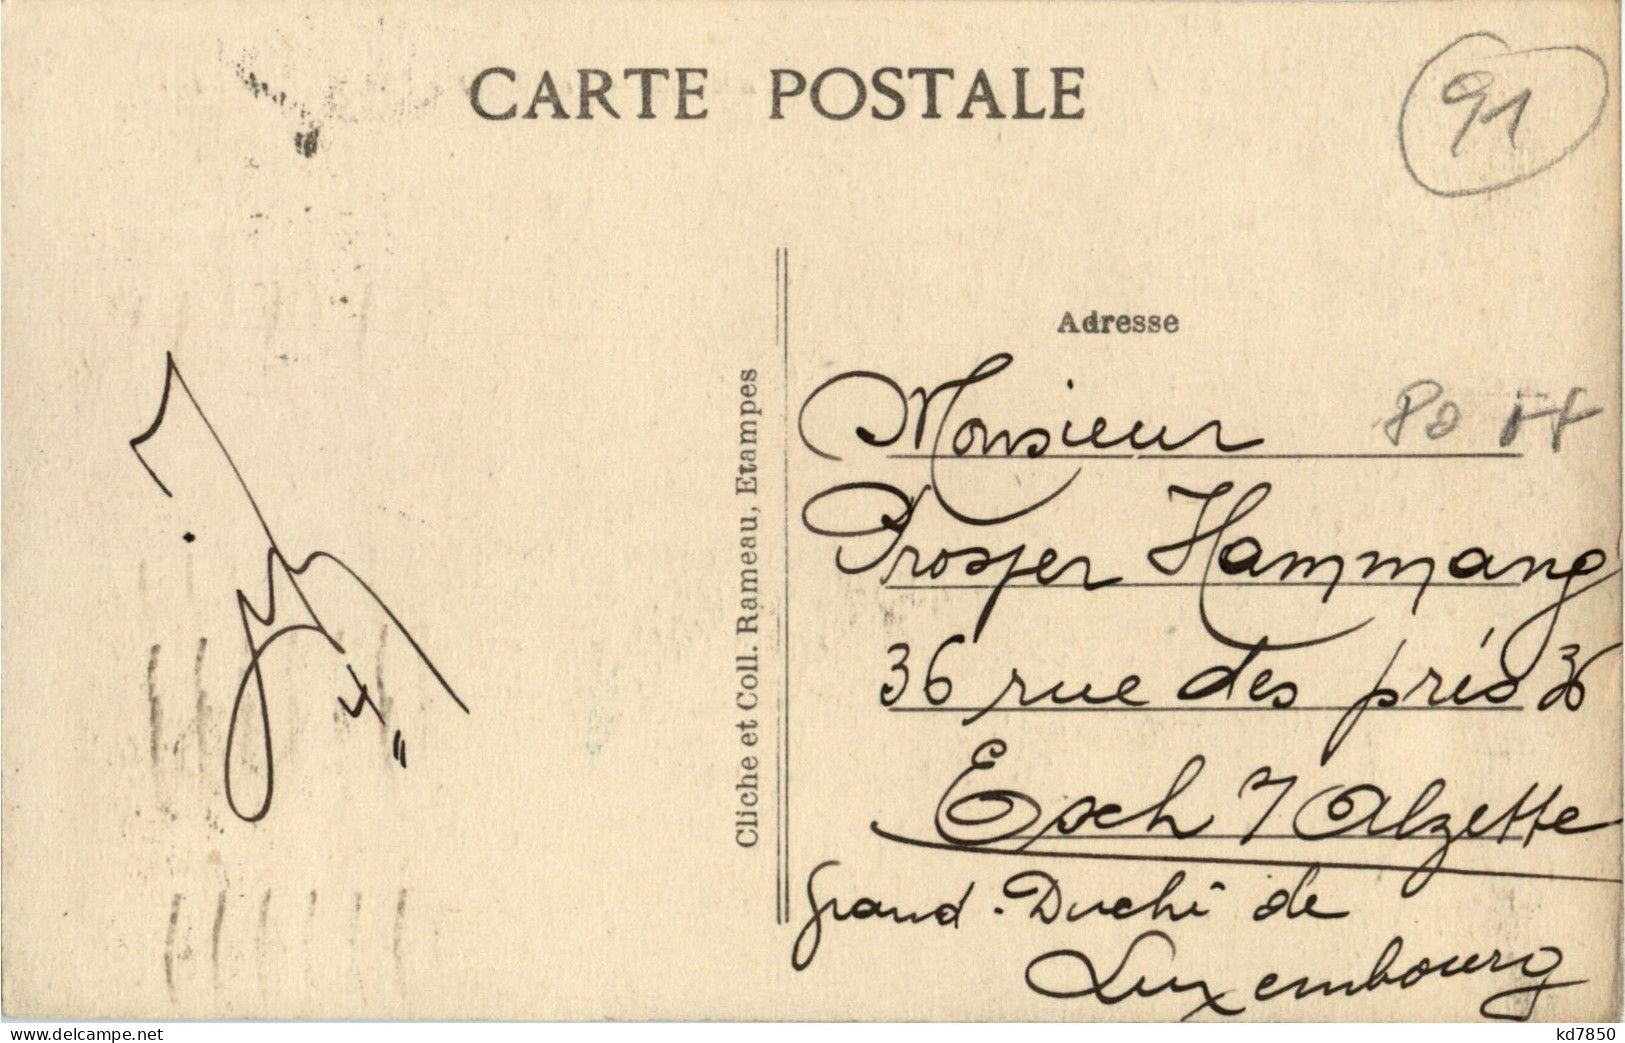 CARTE POSTALE
91
Adresse
Cliche et Coll. Rameau, Etampes
Monsieur
Prosper Hammang
36 rue des prés 36
Esch / Alzette
Grand-Duché de
Luxembourg
delcampe.net
kd7850